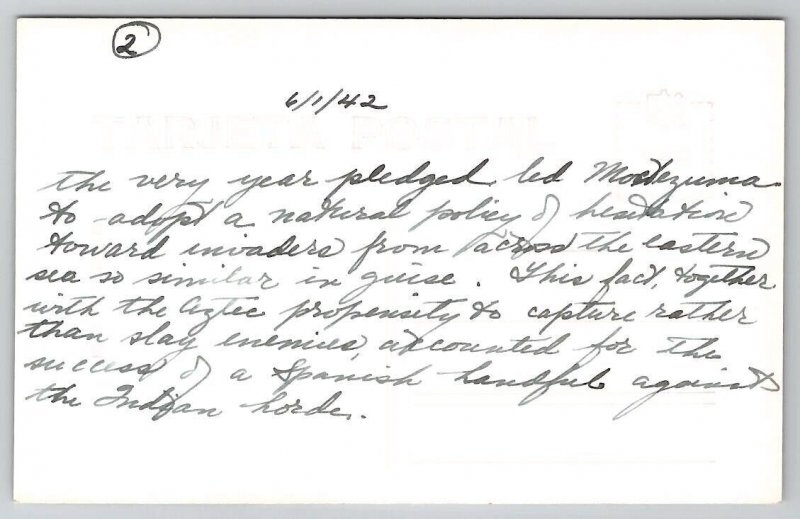 2
6/1/42
TARJETA POSTAL
the very year pledged, led Moctezuma
to adopt a natural policy of hesitation
toward invaders from across the eastern
sea so similar in guise. This fact, together
with the Aztec propensity to capture rather
than slay enemies, accounted for the
success of a Spanish handful against
the Indian horde.